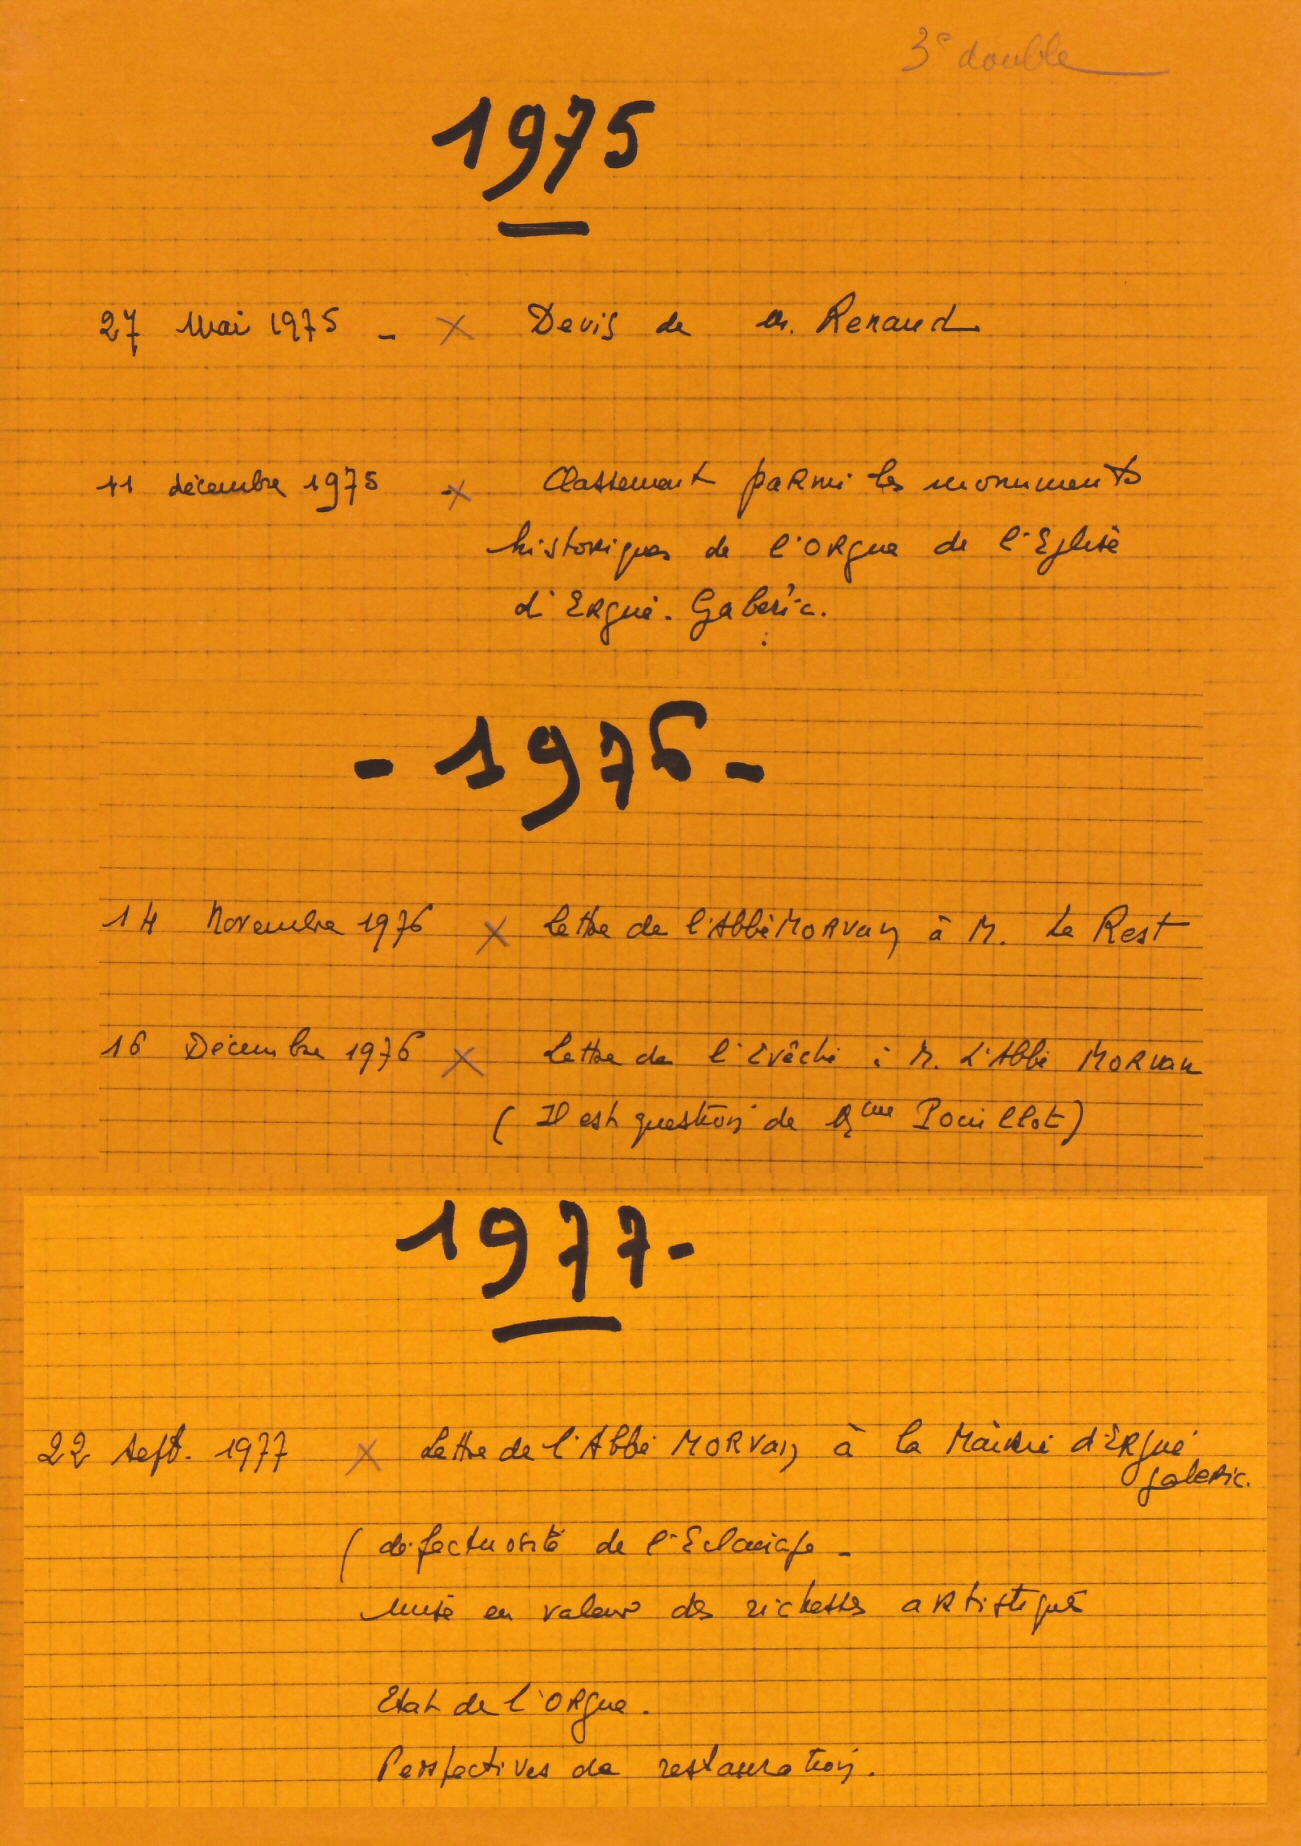 3e double
1975
27 Mai 1975 - x Devis de M. Renaud
11 décembre 1975 - x Classement parmi les monuments
historiques de l'orgue de l'Eglise
d'Ergué-Gabéric.
- 1976 -
14 Novembre 1976 x Lettre de l'Abbé MORVAN à M. Le Rest
16 Décembre 1976 x Lettre de l'Evêché à M. L'Abbé MORVAN
( Il est question de Mme Pouillot)
1977-
22 sept. 1977 x Lettre de l'Abbé MORVAN à la Mairie d'Ergué
gabéric.
( défectuosité de l'Eclairage -
mise en valeur des richesses artistiques
Etat de l'orgue.
Perspectives de restauration.